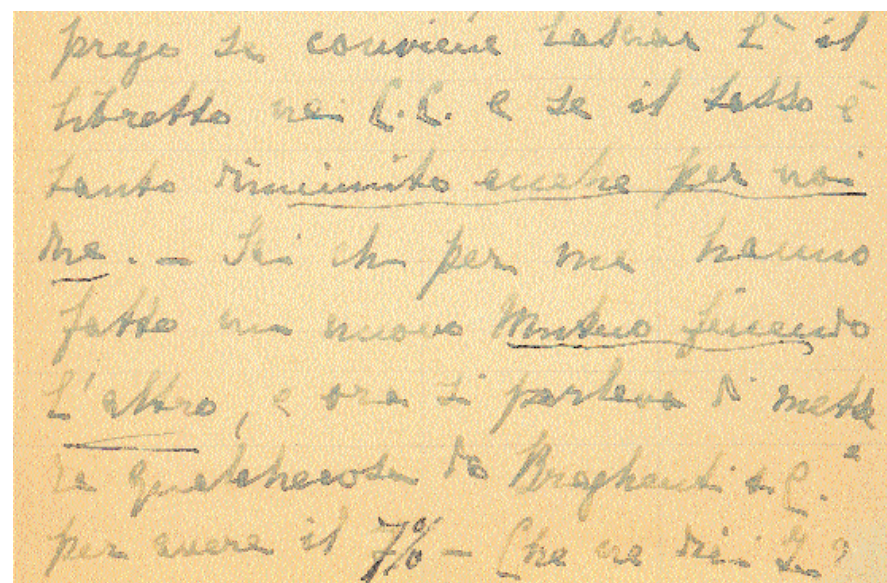 prego se conviene lasciar lì il
libretto nei C.C. e se il tasso è
tanto diminuito anche per noi
due. - Sai che per me hanno
fatto un nuovo Mutuo finendo
l'altro, e ora si parlava di mette
re qualchecosa da Braghenti e C.ª
per avere il 7% - Che ne dici